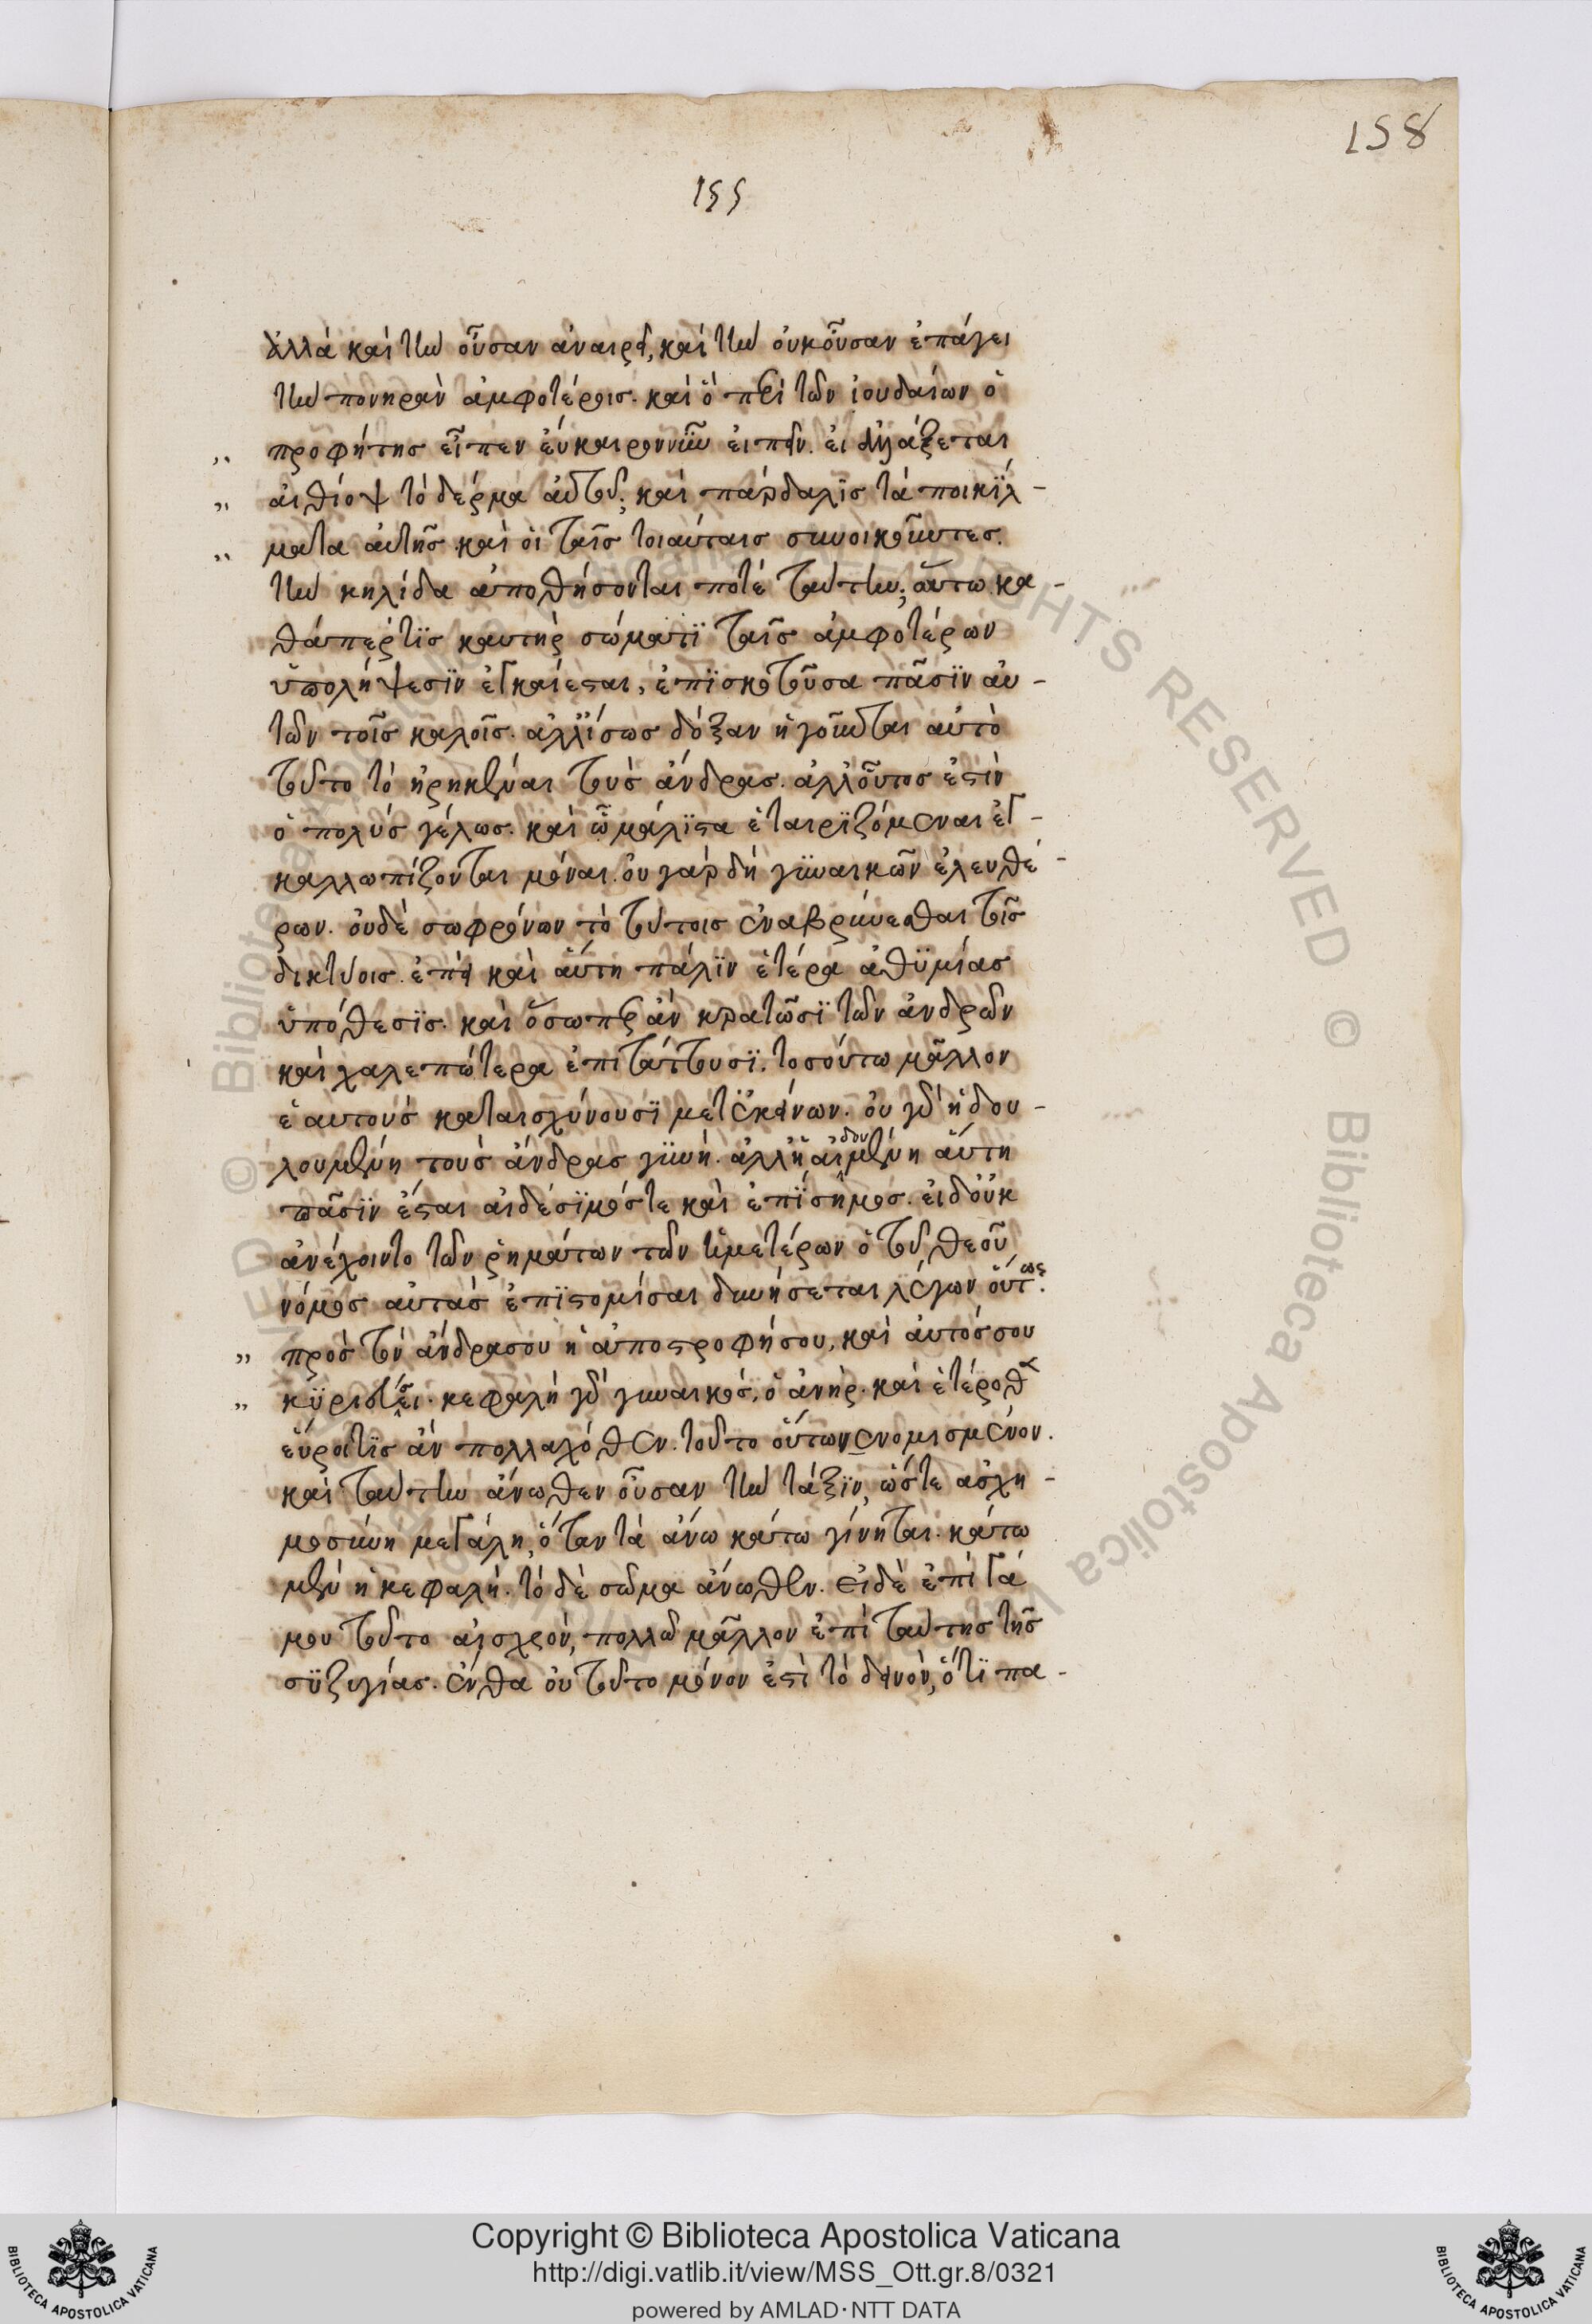 158
155
ἀλλὰ καὶ τὴν οὖσαν ἀναιρεῖ, καὶ τὴν οὐκοῦσαν ἐπάγει
τὴν πονηρὰν ἀμφοτέροις. καὶ ὃ περὶ τῶν ἰουδαίων ὁ
,, προφήτης εἶπεν εὔκαιρον νῦν εἰπεῖν. εἰ ἀλλάξεται
,, αἰθίοψ τὸ δέρμα αὐτοῦ; καὶ πάρδαλϊς τὰ ποικϊλ-
,, ματα αὐτῆς καὶ οἱ ταῖς τοιαύταις συνοικοῦντες.
τὴν κηλίδα ἀποθήσονται ποτὲ ταύτην; οὕτω κα-
θάπέρ τϊς καυτὴρ σώματϊ ταῖς ἀμφοτέρων
ὑπολήψεσϊν ἐγκαίεται, ἐπϊσκοτοῦσα πᾶσϊν αὐ-
τῶν τοῖς καλοῖς. ἀλλ' ἴσως δόξαν ἡγοῦνται αὐτὸ
τοῦτο τὸ ἡρηκέναι τοὺς ἄνδρας. ἀλλ' οὗτος ἐστὶν
ὁ πολὺς γέλως. καὶ ὧ μάλϊστα ἑταιρϊζόμεναι ἐγ-
καλλωπίζονται μόναι. οὐ γὰρ δὴ γϋναικῶν ἐλευθέ-
ρων. οὐδὲ σωφρόνων τὸ τούτοις ἐναβρύνεσθαι τοῖς
δικτύοις. ἐπεὶ καὶ αὕτη πάλϊν ἑτέρα ἀθϋμίας
ὑπόθεσϊς. καὶ ὅσωπερ ἂν κρατῶσϊ τῶν ἀνδρῶν
καὶ χαλεπώτερα ἐπιτάττουσϊ. τοσούτω μᾶλλον
ἑαυτοὺς καταισχύνουσϊ μετ' ἐκείνων. οὐ γὰρ ἡ δου-
λουμένη τοὺς ἄνδρας γϋνή. ἀλλ' ἡ αἰδουμένη αὕτη
πᾶσϊν ἔσται αἰδέσϊμός τε καὶ ἐπϊσημος. εἰ δ' οὐκ
ἀνέχοιντο τῶν ῥημάτων τῶν ἡμετέρων ὁ τοῦ θεοῦ
νόμος αὐτὰς ἐπϊστομίσαι δυνήσεται λέγων οὕτως.
,, πρὸς τὸν ἄνδρα σου ἡ ἀποστροφή σου, καὶ αὐτός σου
,, κϋριεύσει. κεφαλὴ γὰρ γυναικός, ὁ ἀνήρ. καὶ ἑτέρωθι
εὕροι τϊς ἂν πολλαχόθεν. τοῦτο οὕτω νενομισμένον.
καὶ ταύτην ἄνωθεν οὖσαν τὴν τάξϊν, ὥστε ἀσχη-
μοσύνη μεγάλη, ὅταν τὰ ἄνω κάτω γίνηται. κάτω
μὲν ἡ κεφαλή. τὸ δὲ σῶμα ἄνωθεν. εἰ δὲ ἐπὶ γά
μου τοῦτο αἰσχρὸν, πολλῶ μᾶλλον ἐπὶ ταύτης τῆς
σϋζυγίας. ἔνθα οὐ τοῦτο μόνον ἐστὶ τὸ δεινὸν, ὅτϊ πα-
Copyright © Biblioteca Apostolica Vaticana
http://digi.vatlib.it/view/MSS_Ott.gr.8/0321
powered by AMLAD·NTT DATA
BIBLIOTECA APOSTOLICA VATICANA
BIBLIOTECA APOSTOLICA VATICANA